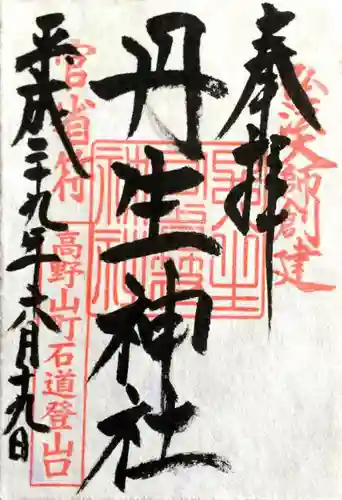 奉拝
弘法大師創建
丹生神社
官省符
高野山町石道登山口
平成二十九年六月十九日